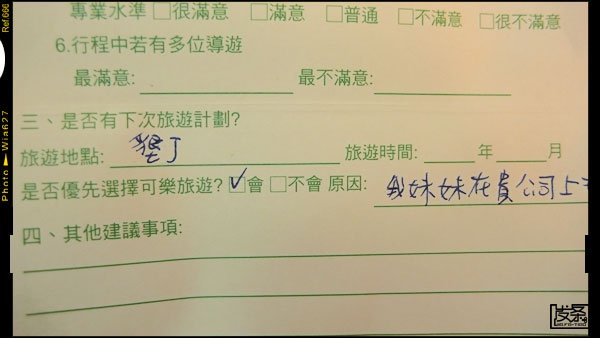 專業水準 □很滿意 □滿意 □普通 □不滿意 □很不滿意
6.行程中若有多位導遊
最滿意: 最不滿意:
三、是否有下次旅遊計劃?
旅遊地點: 墾丁 旅遊時間: 年 月
是否優先選擇可樂旅遊? ☑會 □不會 原因: 我妹妹在貴公司上
四、其他建議事項:
Photo ► Wia627
Ref.666